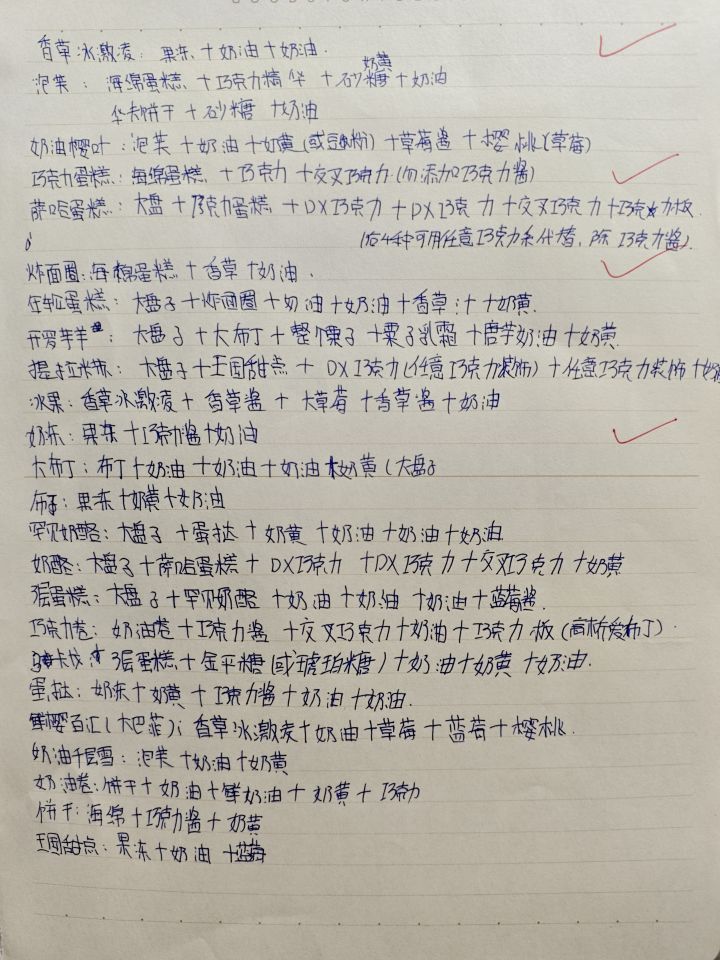 香草冰激凌：果冻+奶油+奶油.
奶黄
泡芙：海绵蛋糕+巧克力精华+砂糖+奶油
华夫饼干+砂糖+奶油
奶油樱叶：泡芙+奶油+奶黄(或豆粉)+草莓酱+樱桃(草莓)
巧克力蛋糕：海绵蛋糕+巧克力+交叉巧克力(勿添加巧克力酱)
萨哈蛋糕：大盘+巧克力蛋糕+DX巧克力+DX巧克力+交叉巧克力+巧克力板.
(后4种可用任意巧克力系代替，除巧克力酱).
炸面圈：海棉蛋糕+香草+奶油.
年轮蛋糕：大盘子+炸面圈+奶油+奶油+香草汁+奶黄.
大盘子+大布丁+整个栗子+栗子乳霜+磨芋奶油+奶黄.
提拉米苏：大盘子+王国甜点+DX巧克力(任意巧克力装饰)+任意巧克力装饰+奶
冰果：香草冰激凌+香草酱+大草莓+香草酱+奶油
奶冻：果冻+巧克力酱+奶油
大布丁：布丁+奶油+奶油+奶油+奶黄(大盘子
布丁：果冻+奶黄+奶油
罕见奶酪：大盘子+蛋挞+奶黄+奶油+奶油+奶油
奶酪：大盘子+萨哈蛋糕+DX巧克力+DX巧克力+交叉巧克力+奶黄
3层蛋糕：大盘子+罕见奶酪+奶油+奶油+奶油+蓝莓酱.
巧克力卷：奶油卷+巧克力酱+交叉巧克力+奶油+巧克力板(高桥爱布丁).
3层蛋糕+金平糖(或琥珀糖)+奶油+奶黄+奶油.
蛋挞：奶冻+奶黄+巧克力酱+奶油+奶油.
鲜樱百汇(大巴菲)：香草冰激凌+奶油+草莓+蓝莓+樱桃.
奶油千层雪：泡芙+奶油+奶黄
奶油卷：饼干+奶油+鲜奶油+奶黄+巧克力
饼干：海绵+巧克力酱+奶黄
王国甜点：果冻+奶油+蓝莓